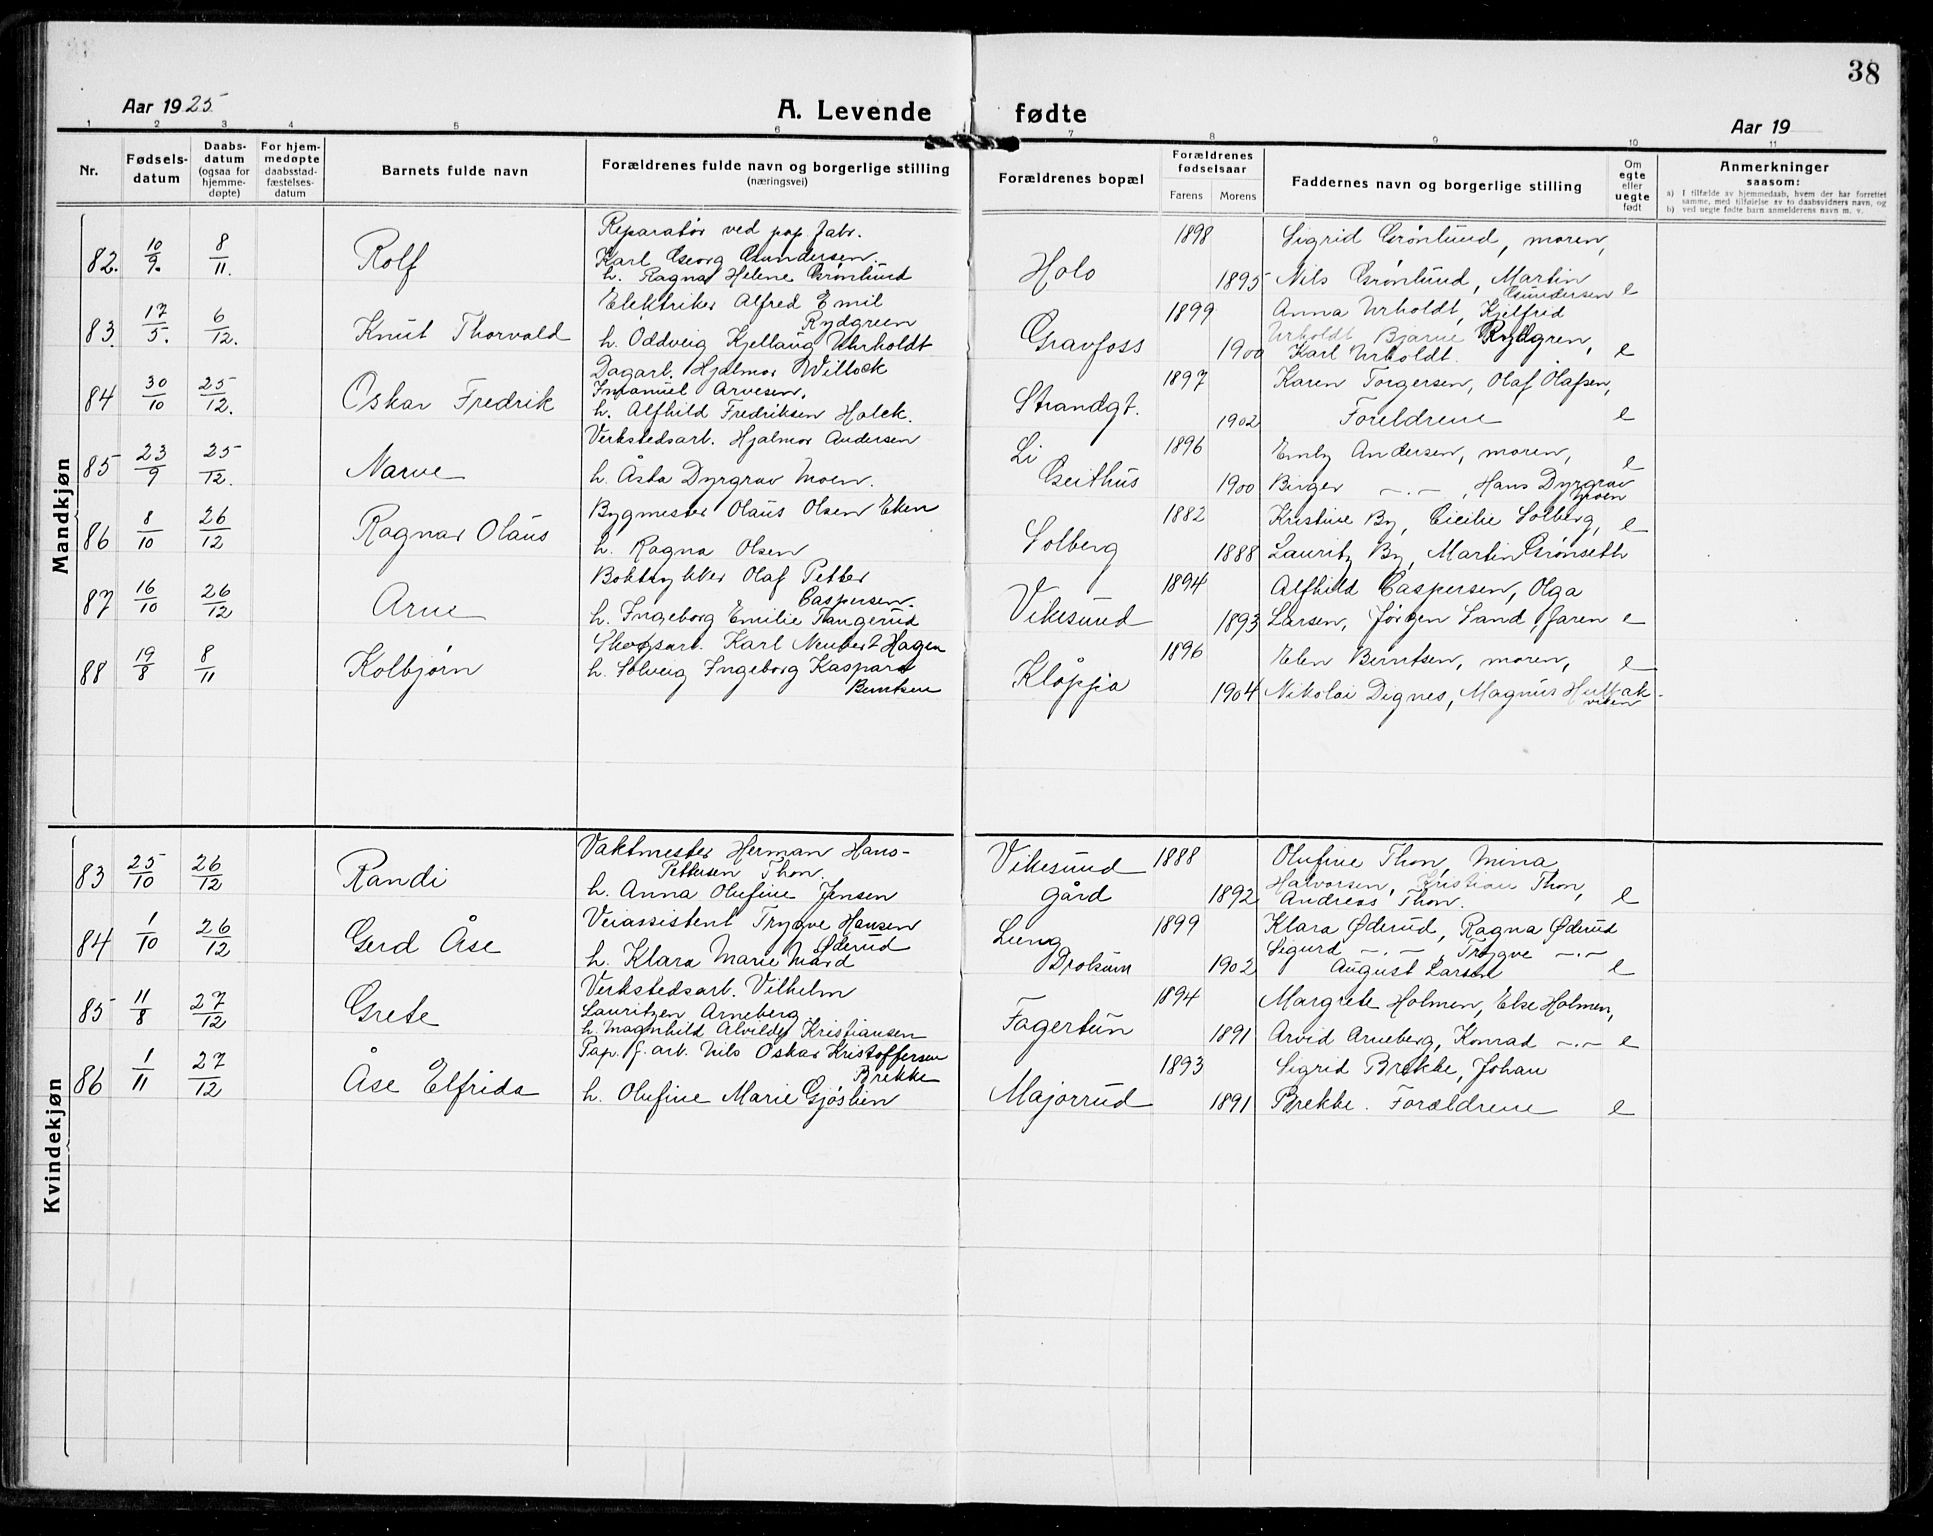 38
Aar 1925
A. Levende fødte
Aar 19
1 2 3 4 5 6 7 8 9 10 11
Nr.
Fødsels-
datum
Daabs-
datum
(ogsaa for
hjemme-
døpte)
For hjem-
medøpte
daabsstad-
fæstelses-
datum
Barnets fulde navn
Forældrenes fulde navn og borgerlige stilling
(næringsvei)
Forældrenes bopæl
Forældrenes
fødselsaar
Farens Morens
Faddernes navn og borgerlige stilling
Om
egte
eller
uegte
født
Anmerkninger
saasom:
a) I tilfælde av hjemmedaab, hvem der har forrettet
samme, med tilføielse av to daabsvidners navn, og
b) ved uegte fødte barn anmelderens navn m. v.
Mandkjøn
82. 10/9. 8/11. Rolf
Reparatør ved pap. fabr.
Karl Georg Gundersen.
h. Ragna Helene Grønlund
Holo
1898
1895
Sigrid Grønlund, moren,
Nils Grønlund, Martin
Gundersen e
83. 17/5. 6/12. Knut Thorvald
Elektriker Alfred Emil
Rydgreen
h. Oddveig Kjellaug Uhrholdt
Gravfoss
1899
1900
Anna Urholdt, Kjelfred
Urholdt Bjarne Rydgren,
Karl Urholdt. e
84 30/10 25/12. Oskar Fredrik
Dagarb. Hjalmar Willock
Imanuel Arvesen.
h. Alfhild Fredriksen Holck.
Strandgt.
1897
1902
Karen Torgersen, Olaf Olafsen,
Foreldrene e
85 23/9 25/12. Narve
Verkstedsarb. Hjalmar Andersen
h. Åsta Dyrgrav Moen.
Li
Geithus
1896
1900
Emly Andersen, moren, e
Birger —·—, Hans Dyrgrav
Moen
86 8/10 26/12 Ragnar Olaus
Bygmester Olaus Olsen Eken
h. Ragna Olsen
Solberg
1882
1888
Kristine By, Cicilie Solberg, e
Lauritz By, Martin Grønseth
87 16/10 26/12 Arne
Boktrykker Olaf Petter
Caspersen.
h. Ingeborg Emilie Tangerud
Vikesund
1894
1893
Alfhild Caspersen, Olga
Larsen, Jørgen Sand, faren e
88 19/8 8/11 Kolbjørn
Skogsarb. Karl Neubert Hagen
h. Solveig Ingeborg Kaspara
Berntsen
Kløppia
1896
1904
Elen Berntsen, moren, e
Nikolai Dignes, Magnus Huttak-
viken
Kvindekjøn
83 25/10 26/12 Randi
Vaktmester Herman Hans-
Pettersen Thon.
h. Anna Olufine Jensen
Vikesund
gård
1888
1892
Olufine Thon, Mina
Halvorsen, Kristian Thon,
Andreas Thon. e
84 1/10 26/12 Gerd Åse
Verassistent Trygve Hansen
Øderud
h. Klara Marie Mård
Leng
Drolsum
1899
1902
Klara Øderud, Ragna Øderud
Sigurd —·—, Trygve —·—
August Larsen e
85 11/8 27/12 Grete
Verkstedsarb. Vilhelm
Lauritzen Arneberg
h. Magnhild Alvilde Kristiansen
Fagertun
1894
1891
Margrete Holmen, Else Holmen,
Arvid Arneberg, Konrad —·— e
86 1/11 27/12 Åse Elfrida
Pap. f. arb. Nils Oskar Kristoffersen
Brekke
h. Olufine Marie Gjøslien
Majorrud
1893
1891
Sigrid Brekke, Johan
Brekke. Forældrene e